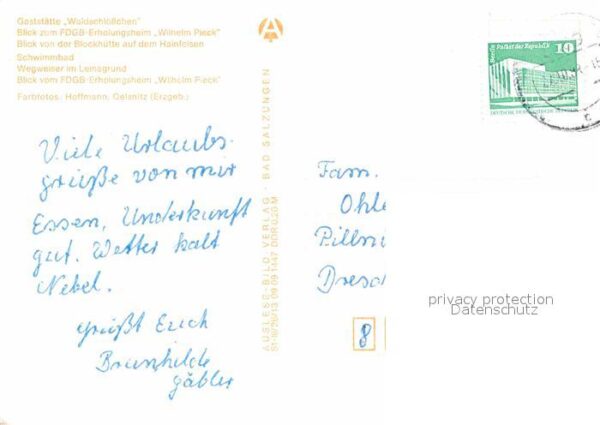 Gaststätte „Waldschlößchen"
Blick zum FDGB-Erholungsheim „Wilhelm Pieck"
Blick von der Blockhütte auf dem Hainfelsen
Schwimmbad
Wegweiser im Leinagrund
Blick vom FDGB-Erholungsheim „Wilhelm Pieck"
Farbfotos: Hoffmann, Oelsnitz (Erzgeb.)
Viele Urlaubs-
grüße von mir
Essen, Underkunft
gut. Wetter kalt
Nebel.
grüßt Euch
Brunhilde
Gäbler
AUSLESE-BILD-VERLAG · BAD SALZUNGEN
09 09 1447 DDR 0,20 M
A
Berlin Palast der Republik
10
DEUTSCHE DEMOKRATISCHE REPUBLIK
Fam.
Ohle
Pillni
Dresd
8
privacy protection
Datenschutz